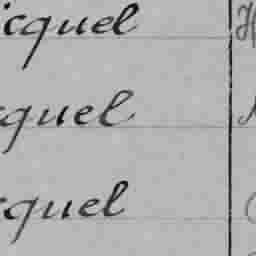 icquel
cquel
cquel